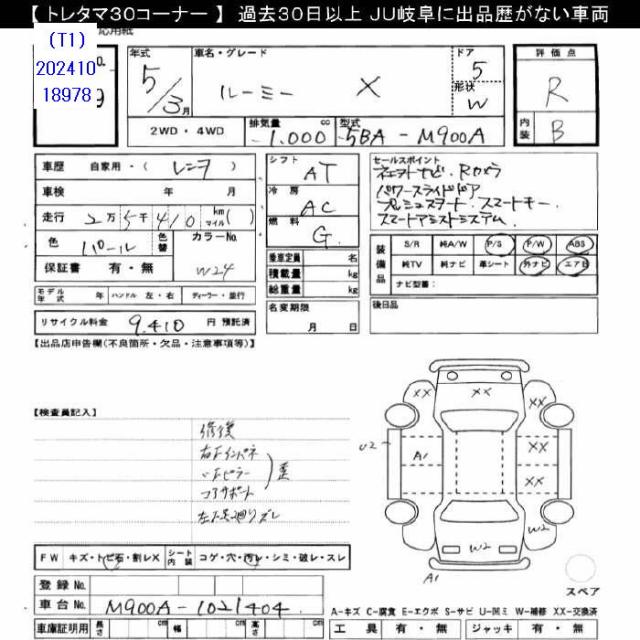 【 トレタマ30コーナー 】 過去30日以上 JU岐阜に出品歴がない車両
応用紙
(T1)
202410
18978
年式
5/3月
車名・グレード
ルーミー X
ドア
5
形状
W
評価点
R
内装
B
2WD・4WD
排気量
1.000 cc
型式
5BA - M900A
車歴 自家用・( レンタ )
車検 年 月
走行 2万5千410 km マイル ( )
色 パール 色替
カラーNo. W24
保証書 有・無
モデル年式 年 ハンドル 左・右 ディーラー・並行
リサイクル料金 9.410 円 預託済
シフト AT
冷房 AC
燃料 G.
乗車定員 名
積載量 kg
総重量 kg
名変期限
月 日
セールスポイント
パワースライドドア
プッシュスタート、スマートキー、
スマートアシストシステム、
装備品
S/R 純A/W P/S P/W ABS
純TV 純ナビ 革シート 外ナビ エアB
ナビ型番:
後日品
【出品店申告欄(不良箇所・欠品・注意事項等)】
【検査員記入】
修復
右下インパネ
コアサポート 歪
左下足廻りズレ
XX XX XX
U2 A1 XX
XX
W2
W2
A1
スペア
FW キズ・トビ石・割レX シート内装 コゲ・穴・汚レ・シミ・破レ・スレ
登録 No.
車台 No. M900A-1021404
車庫証明用 長さ cm 幅 cm 高さ cm
A-キズ C-腐食 E-エクボ S-サビ U-凹ミ W-補修 XX-交換済
工具 有・無 ジャッキ 有・無